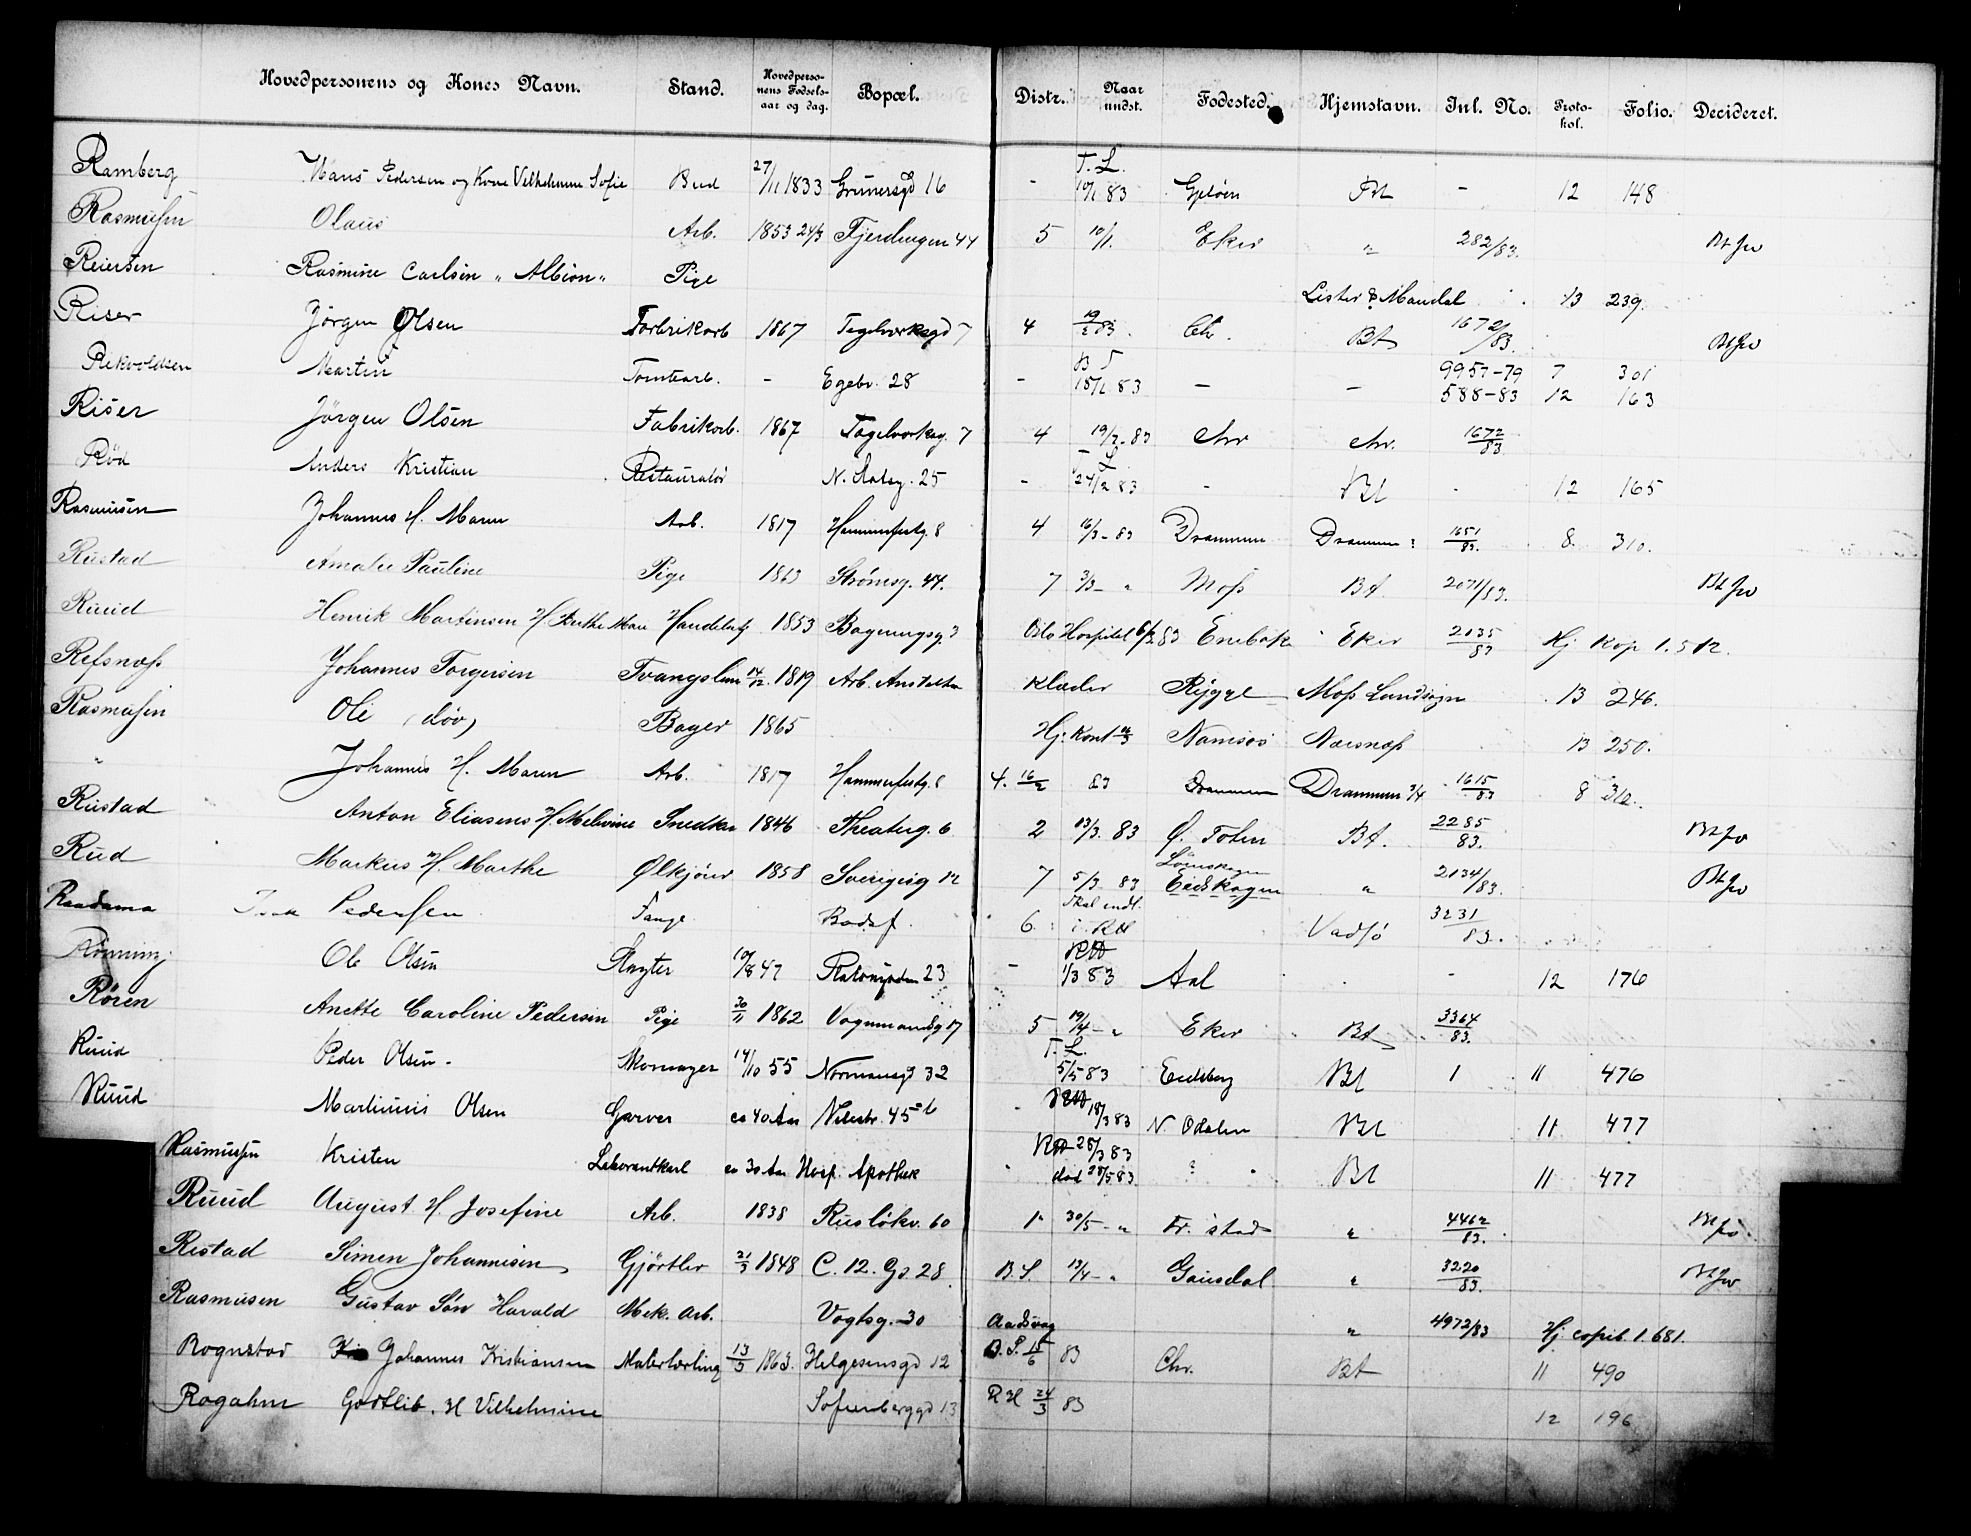 Hovedpersonens og Kones Navn. Stand. Hovedperso-nens Fødsels-aar og dag. Bopæl. Distr. Naar undst. Fødested. Hjemstavn. Inl. No. Proto-kol. Folio. Decideret.
Ramberg Hans Pedersen og Kone Vilhelmine Sofie Bud 27/11 1833 Grünersgd 16 - T. L. 10/1 83 Gjeløen Bt - 12 148
Rasmussen Olaus Arb. 1853 24/3 Fjerdingen 44 5 10/1. Eker " 282/83. Bt Jvo
Reiersen Rasmine Carlsen "Albion" Pige Lister & Mandal 13 239.
Riser Jörgen Olsen Fabrikarb 1867 Tegelverksgd 7 4 19/2 83 Chr. Bt 1672/83. Bt Jvo
Rekvoldsen Martin Tomtearb. - Egebr. 28 - B T 15/1 83 - - 9957-79 7 301
588-83 12 163
Riser Jörgen Olsen Fabrikarb. 1867 Tegelverksg. 7 4 19/2-83 Chr Chr. 1672/83
Röd Anders Kristian Restauratör N. Slotsg. 25 - T L 24/2 83 - Bt - 12 165
Rasmusen Johannes H. Maren Arb. 1817 Hammerfestg. 8 4 16/3-83 Drammen Drammen 1651/83. 8. 310.
Rustad Amalie Pauline Pige 1863 Strömsg. 44. 7 3/3- " Moss Bt 2071/83. Bt Jvo
Ruud Henrik Martinsen H. Anthe Mari Handelsb 1853 Bogerudsg. 3 Oslo Hospital 6/3 83 Enebak Eker 2135/83 Hj. Kop 1.512.
Refsnæss Johannes Torgersen Tvangslem 14/12. 1819 Arb. Anstalten Klæder Rygge Moss Landsogn 13 246.
Rasmussen Ole (döv) Bager 1865 Hj. Kont Namsos Nærsnæss 13 250.
" Johannes H. Maren Arb. 1817 Hammerfestg. 8 4. 16/2 83 Drammen Drammen 3/4 1615/83 8 312.
Rustad Anton Eliasens H. Melvine Snedker 1846 Theaterg. 6 2 13/3. 83 Ø. Toten Bt. 2285/83. Bt Jvo
Rud Markus H. Marthe Ølkjörer 1858 Sverigesg 12 7 5/3 83 Eidskogen " 2134/83. Bt Jvo
Raadama Isak Pedersen Fange Bodsf. 6. Skal indl. i RH Vadsö 3231/83.
Rönning Ole Olsen Slagter 10/8 47 23 - RH 1/3 83 Aal - 12 176
Rören Anette Caroline Pedersen Pige 30/11 1862 Vognmandsg 17 5 19/4- " Eker Bt 3364/83.
Ruud Peder Olsen - Skomager 14/10 55 Normansgd 32 T. L. 5/5 83 Eidsberg Bt 1 11 476
Ruud Martinius Olsen Garver ca 40 Aar Nilestr. 45 RH 18/3 83 N. Odalen Bt 11 477
Rasmussen Kristen Laborantkarl ca 30 Aar Hosp. Apothek RH 28/3 83 död 28/5 83 ? Bt 11 477
Ruud August. H. Josefine Arb. 1838 Ruslökv. 60 1 30/5- " Fr. stad " 4462/83. Bt Jvo
Ristad Simen Johannesen Gjörtler 21/3 1848 C. 12. Gs. 28. B. S. 13/4- " Gausdal " 3220/83. Bt Jvo
Rasmusen Gustav Sön Harald Mek. Arb. Vogtsg. 30 " 4972/83 Hj. copib. 1.681.
Rognstad Johannes Kristiansen Malerlærling 13/3 1863. Helgesensgd 12 B. S. 15/6 83 Chr. Bt 11 490
Rogahn Gottlib. H Vilhelmine Sofienberggd 13 R H 24/3 83 12 196